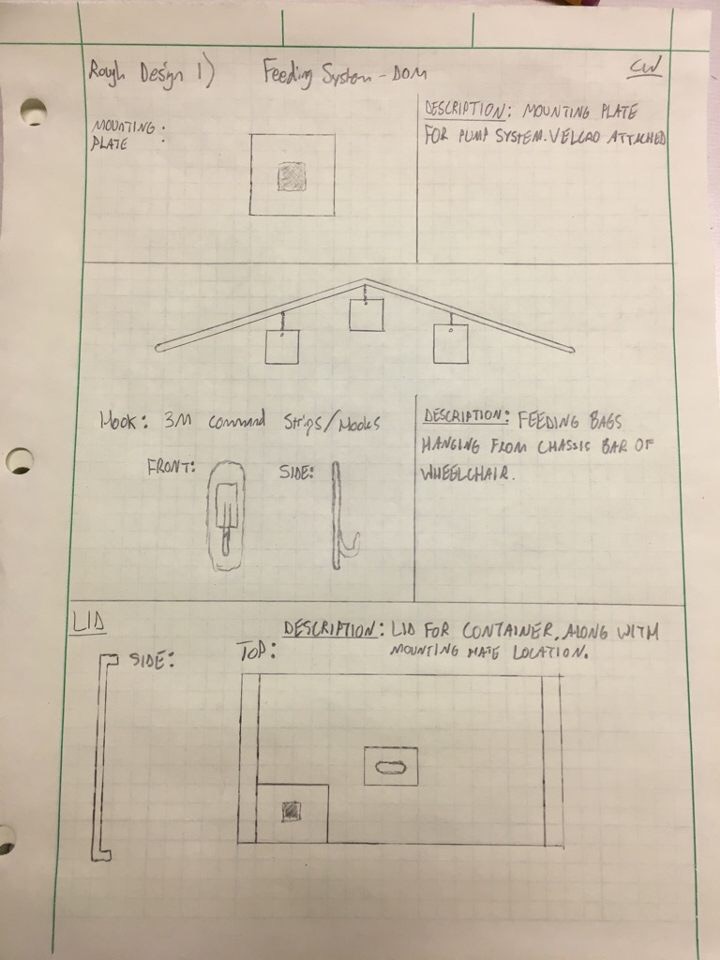 Rough Design 1) Feeding System - DOM CW
MOUNTING:
PLATE :
DESCRIPTION: MOUNTING PLATE
FOR PUMP SYSTEM. VELCRO ATTACHED
Hook: 3M command Strips/Hooks
FRONT: SIDE:
DESCRIPTION: FEEDING BAGS
HANGING FROM CHASSIS BAR OF
WHEELCHAIR.
LID
DESCRIPTION: LID FOR CONTAINER, ALONG WITH
MOUNTING PLATE LOCATION.
SIDE: TOP: